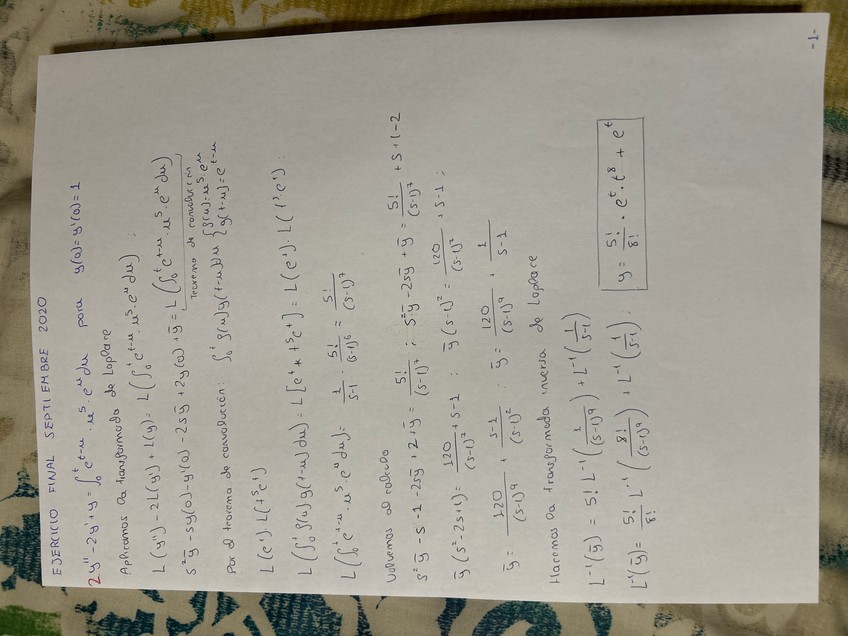 EJERCICIO FINAL SEPTIEMBRE 2020
2 y'' - 2y' + y = ∫₀ᵗ e^(t-u) · u⁵ · e^u du para y(0) = y'(0) = 1
Aplicamos la transformada de Laplace
L(y'') - 2L(y') + L(y) = L(∫₀ᵗ e^(t-u) · u⁵ · e^u du) ;
s²ȳ - sy(0) - y'(0) - 2sȳ + 2y(0) + ȳ = L(∫₀ᵗ e^(t-u) · u⁵ · e^u du)
Teorema de convolución
Por el teorema de convolución: ∫₀ᵗ f(u) g(t-u) du { f(u) = u⁵ · e^u
g(t-u) = e^(t-u)
L(eᵗ) · L(t⁵eᵗ)
L(∫₀ᵗ f(u) g(t-u) du) = L[eᵗ * t⁵eᵗ] = L(eᵗ) · L(t⁵eᵗ) ;
L(∫₀ᵗ e^(t-u) · u⁵ · e^u du) = 1/(s-1) · 5!/(s-1)⁶ = 5!/(s-1)⁷
Volvemos al calculo
s²ȳ - s - 1 - 2sȳ + 2 + ȳ = 5!/(s-1)⁷ ; s²ȳ - 2sȳ + ȳ = 5!/(s-1)⁷ + s + 1 - 2
ȳ(s² - 2s + 1) = 120/(s-1)⁷ + s - 1 ; ȳ(s-1)² = 120/(s-1)⁷ + s - 1 ;
ȳ = 120/(s-1)⁹ + s-1/(s-1)² ; ȳ = 120/(s-1)⁹ + 1/s-1
Hacemos la transformada inversa de Laplace
L⁻¹(ȳ) = 5! L⁻¹(1/(s-1)⁹) + L⁻¹(1/s-1)
L⁻¹(ȳ) = 5!/8! L⁻¹(8!/(s-1)⁹) + L⁻¹(1/s-1) ; y = 5!/8! · eᵗ · t⁸ + eᵗ
-1-